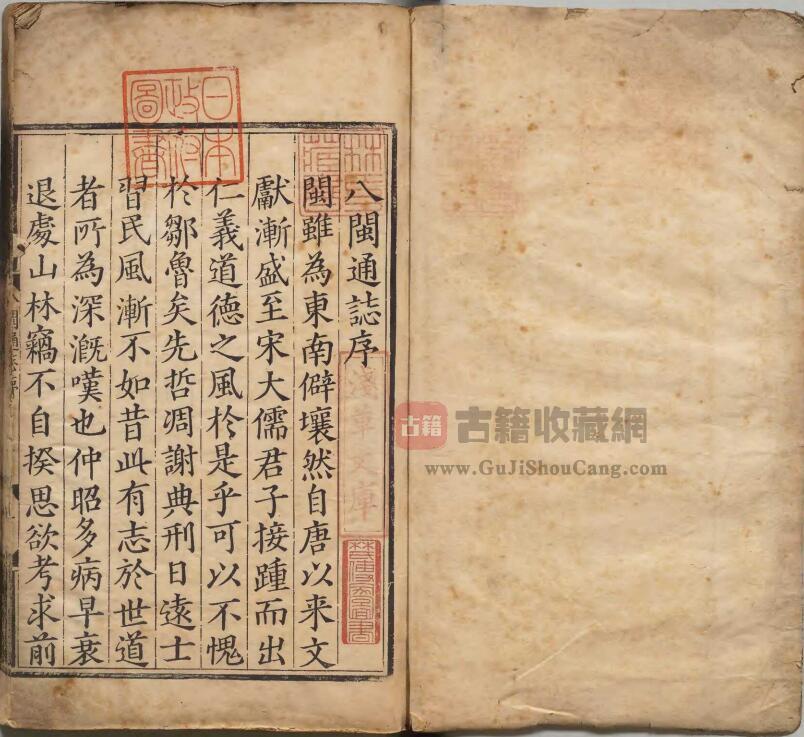 八閩通誌序
閩雖為東南僻壤然自唐以来文
獻漸盛至宋大儒君子接踵而出
仁義道德之風於是乎可以不愧
於鄒魯矣先哲凋謝典刑日遠士
習民風漸不如昔此有志於世道
者所為深漑嘆也仲昭多病早衰
退處山林竊不自揆思欲考求前
日本
政府
圖書
林氏
藏書
淺草文庫
古籍
古籍收藏網
www.GuJiShouCang.com